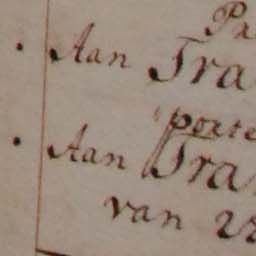 Pa
Aan Tra
porte
Aan Tra
van